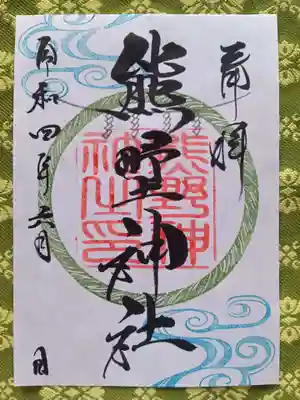 奉拝
熊野神社
令和四年六月 日
熊野神
社之印